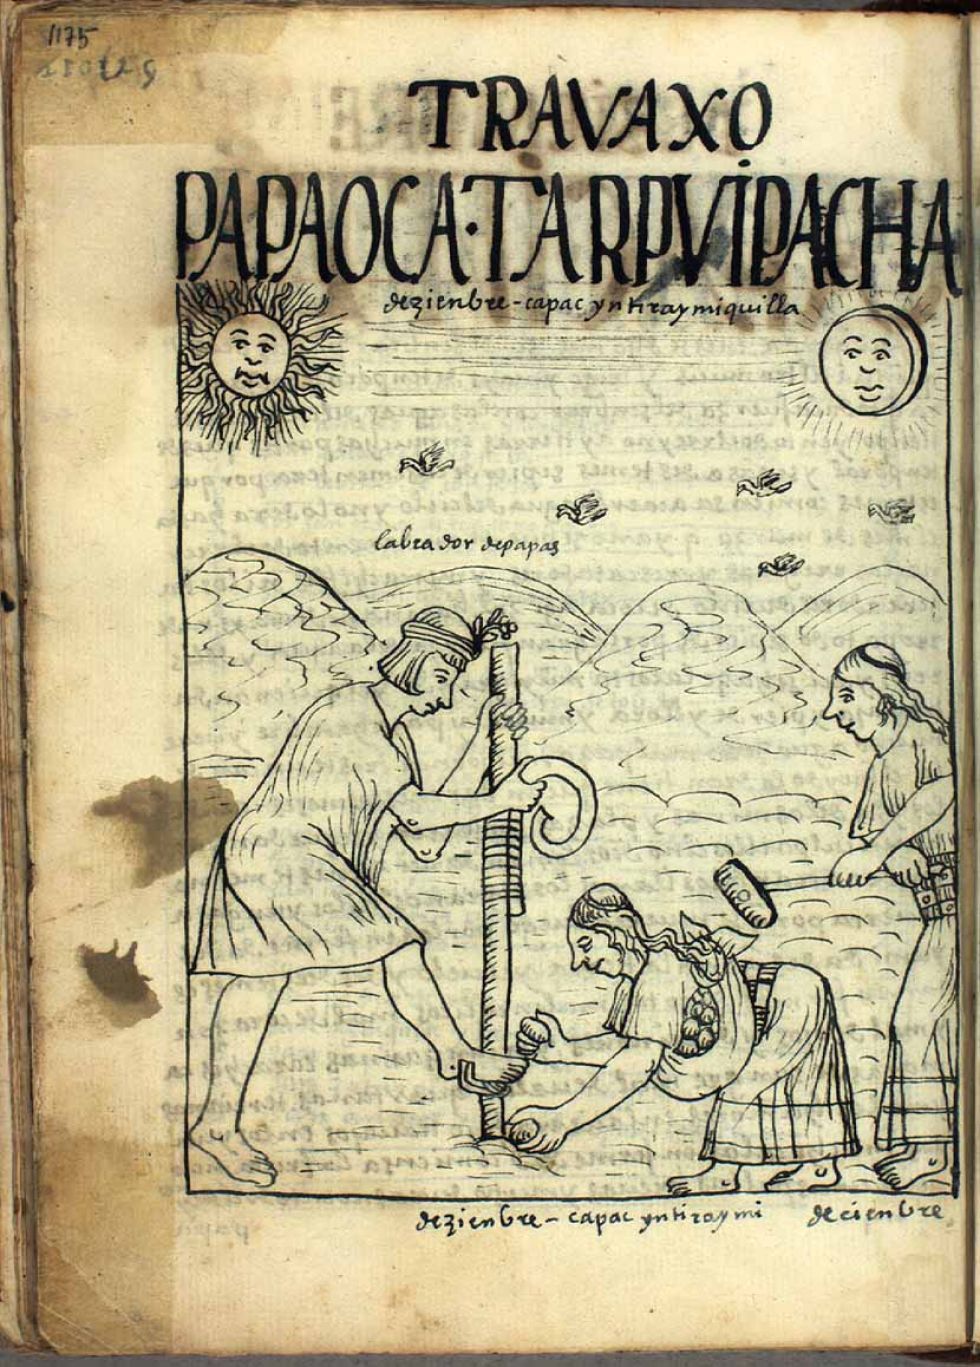 1175
TRAVAXO
PAPAOCA·TARPVIPACHA
dezienbre - capac yntiraymiquilla
labrador depapas
dezienbre - capac yntiraymi deciembre